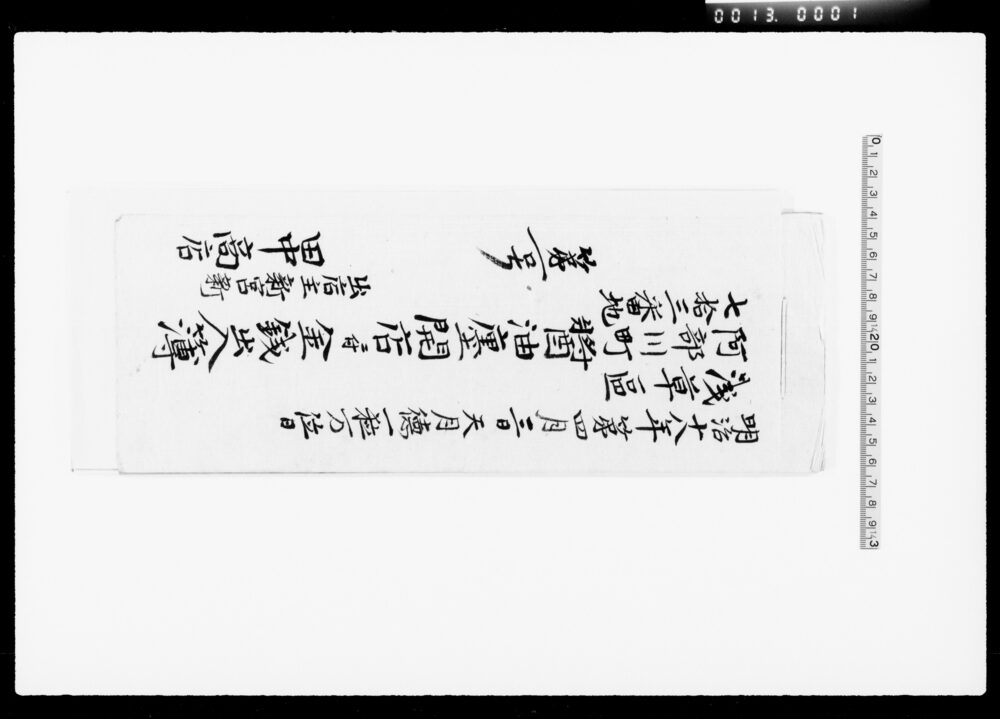 明治十八年第四月三日天月徳一粒万倍日
浅草區
阿部川町
七拾三番地
醤油廛開店ニ付金銭出入簿
第一号
出店主新宮
田中商店
0013. 0001